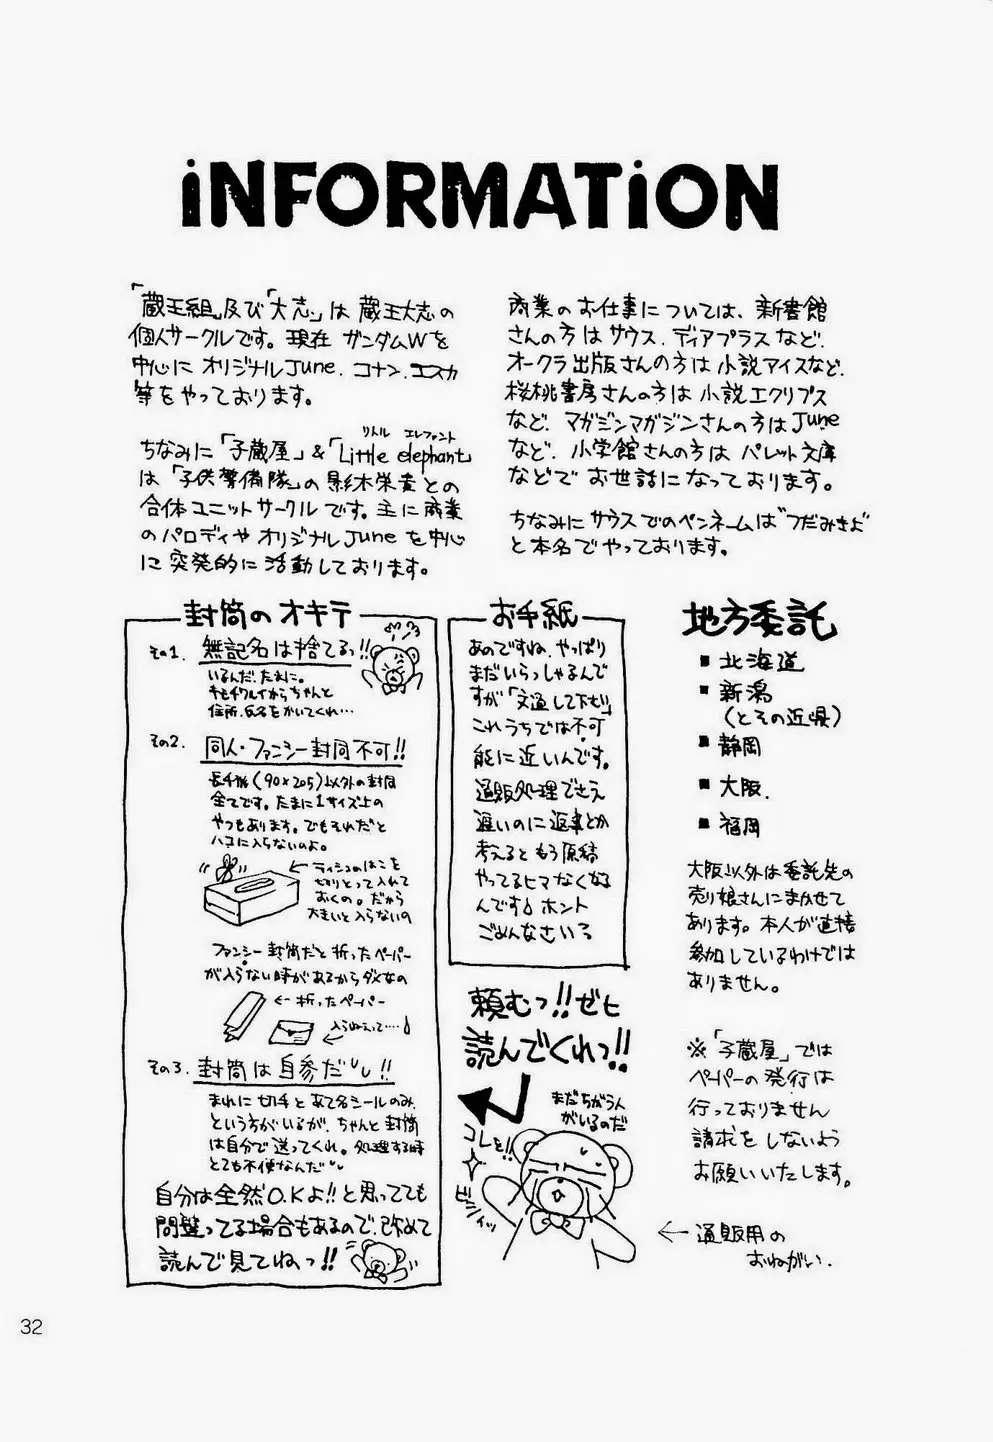 iNFORMATiON
「蔵王組」及び「大志」は 蔵王大志の
個人サークルです。現在 ガンダムWを
中心に オリジナルJune、コナン、エスカ
等をやっております。
リトル エレファント
ちなみに「子蔵屋」&「Little elephant」
は「子供警備隊」の影木栄貴との
合体ユニットサークルです。主に商業
のパロディや オリジナルJuneを中心
に 突発的に活動しております。
商業のお仕事については、新書館
さんの方はサウス、ディアプラスなど、
オークラ出版さんの方は小説アイスなど、
桜桃書房さんの方は小説エクリプス
など、マガジンマガジンさんの方はJune
など、小学館さんの方はパレット文庫
などでお世話になっております。
ちなみにサウスでのペンネームは"つだみきよ"
と本名でやっております。
封筒のオキテ
その1. 無記名は捨てるっ!!
いるんだ、たまに。
キモチワルイからちゃんと
住所、氏名をかいてくれ…
その2. 同人・ファンシー封筒不可!!
長千版(90×205)以外の封筒
全てです。たまに1サイズ上の
やつもあります。でもそれだと
ハコに入らないのよ。
← ティシュのはこを
切りとって入れて
おくの。だから
大きいと入らないの
ファンシー封筒だと折ったペーパー
が入らない時があるからダメなの
← 折ったペーパー
入らねぇって…
その3. 封筒は自参だ!!
まれに切手とあて名シールのみ、
という方がいるが、ちゃんと封筒
は自分で送ってくれ。処理する時
とても不便なんだ
自分は全然O.Kよ!!と思ってても
間違ってる場合もあるので、改めて
読んで見てねっ!!
お手紙
あのですね、やっぱり
まだいらっしゃるんで
すが「文通して下せい」
これうちでは不可
能に近いんです。
通販処理でさえ
遅いのに返事とか
考えるともう原稿
やってるヒマなくなる
んです ホント
ごめんなさいっ
頼むっ!!ゼヒ
読んでくれっ!!
まだちがう人
がいるのだ
コレを!!
ビシィッ
地方委託
■ 北海道
■ 新潟
(とその近県)
■ 静岡
■ 大阪.
■ 福岡
大阪以外は委託先の
売り娘さんにまかせて
あります。本人が直接
参加しているわけでは
ありません。
※「子蔵屋」では
ペーパーの発行は
行っておりません
請求をしないよう
お願いいたします。
← 通販用の
おねがい.
32